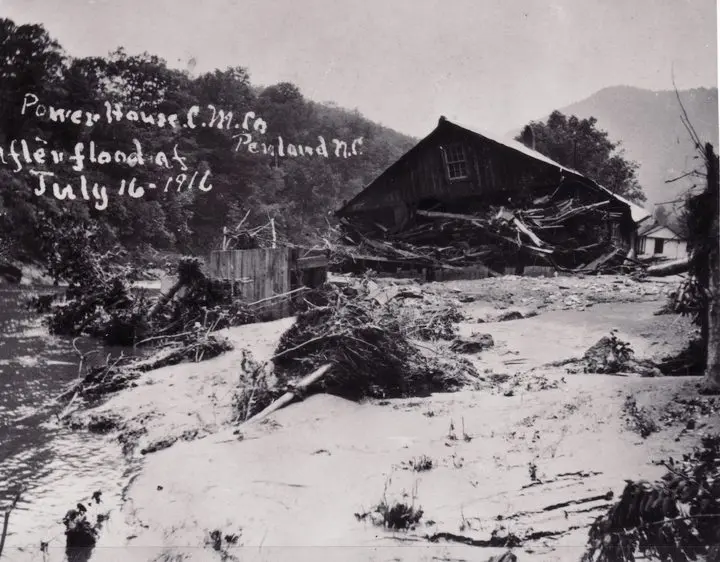 Power House C.M.Co
Penland N.C.
After flood at
July 16-1916